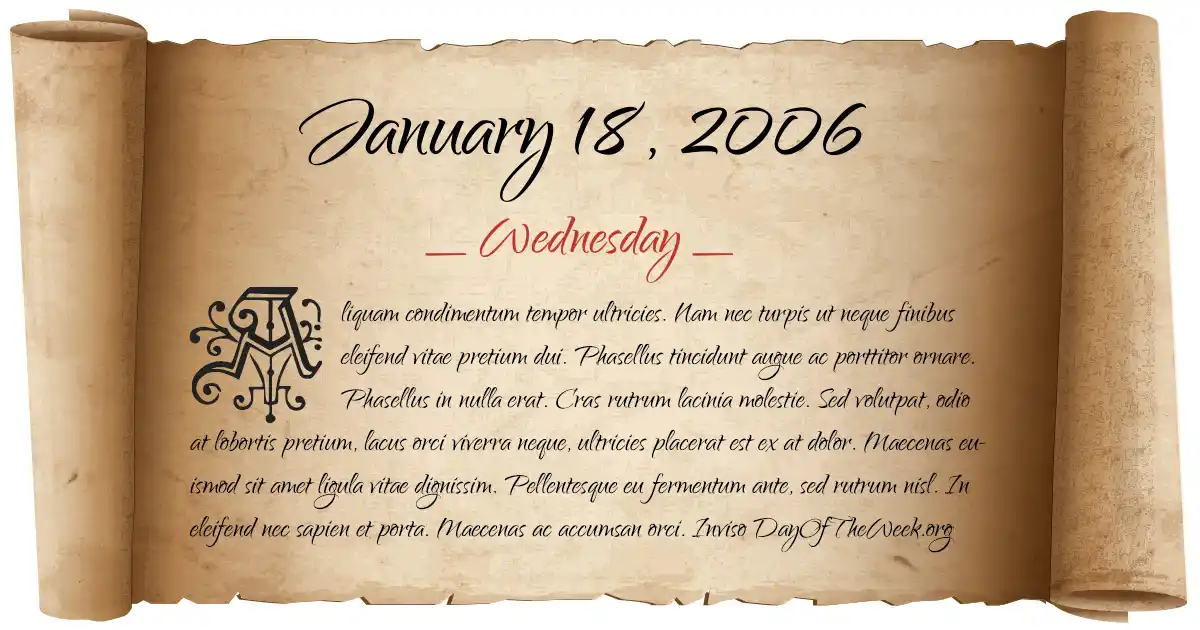 January 18, 2006
Wednesday
Aliquam condimentum tempor ultricies. Nam nec turpis ut neque finibus
eleifend vitae pretium dui. Phasellus tincidunt augue ac porttitor ornare.
Phasellus in nulla erat. Cras rutrum lacinia molestie. Sed volutpat, odio
at lobortis pretium, lacus orci viverra neque, ultricies placerat est ex at dolor. Maecenas eu-
ismod sit amet ligula vitae dignissim. Pellentesque eu fermentum ante, sed rutrum nisl. In
eleifend nec sapien et porta. Maecenas ac accumsan orci. Inviso DayOfTheWeek.org